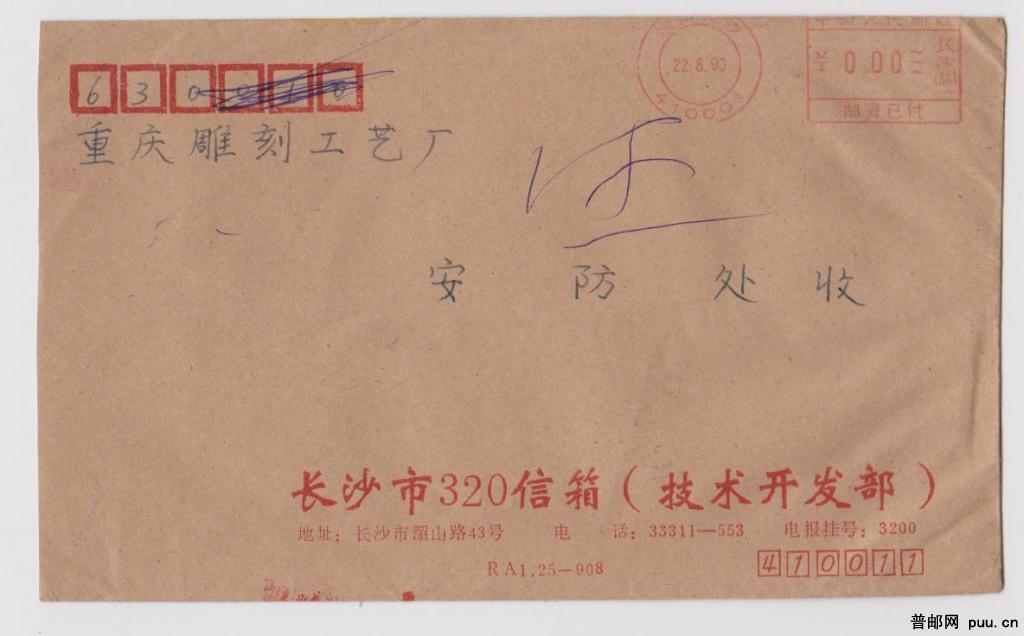 630010
22.8.90
¥ 0.00
长沙
邮资已付
重庆雕刻工艺厂
安 防 处 收
长沙市320信箱(技术开发部)
地址:长沙市韶山路43号 电 话:33311—553 电报挂号:3200
RA1.25—908
410011
普邮网 puu.cn